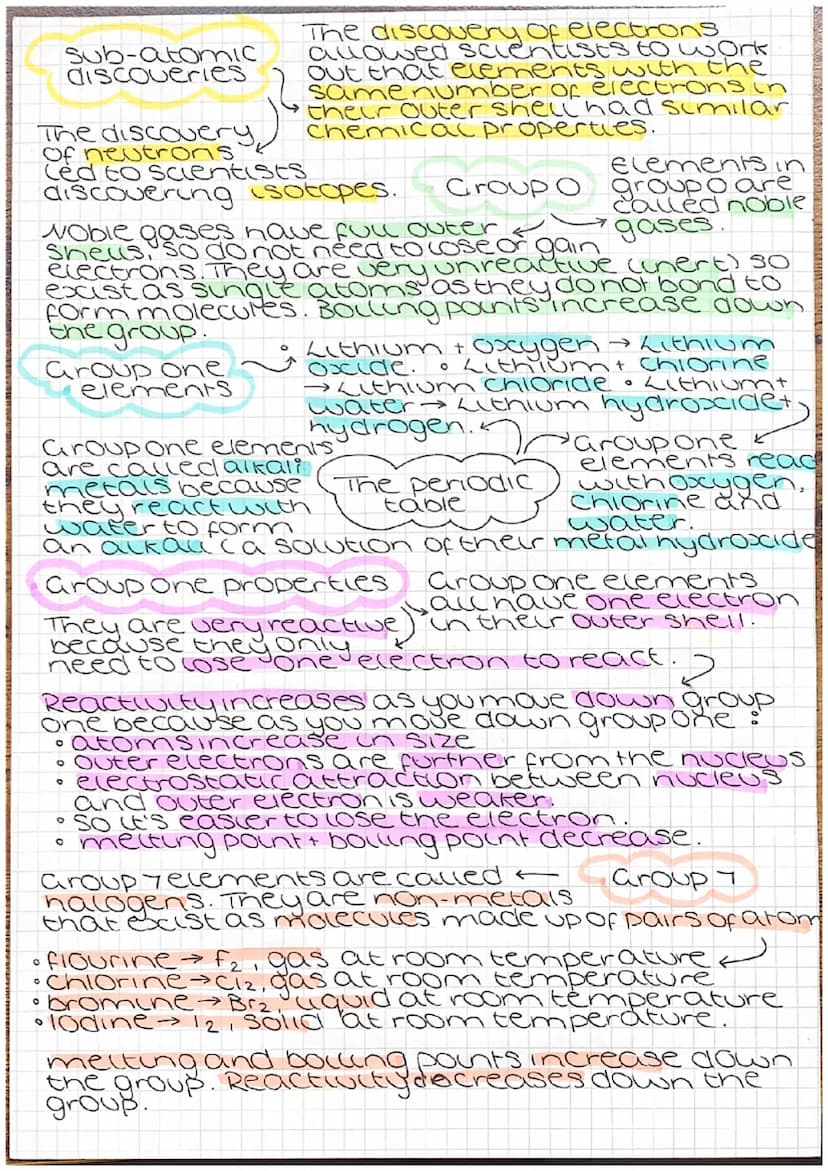 sub-atomic
discoveries
The discovery of electrons
allowed scientists to work
out that elements with the
same number of electrons in
their outer shell had similar
chemical properties.
The discovery
of neutrons
led to scientists
discovering isotopes.
Group 0
elements in
group 0 are
called noble
gases.
Noble gases have full outer
shells, so do not need to lose or gain
electrons. They are very unreactive (inert) so
exist as single atoms as they do not bond to
form molecules. Boiling points increase down
the group.
Group one
elements
• Lithium + oxygen → Lithium
oxide. • Lithium + chlorine
→ Lithium chloride • Lithium +
water → Lithium hydroxide +
hydrogen.
Group one elements
are called alkali
metals because
they react with
water to form
an alkali (a solution of their metal hydroxide
The periodic
table
Group one
elements reac
with oxygen,
chlorine and
water.
Group one properties
Group one elements
all have one electron
in their outer shell.
They are very reactive
because they only
need to lose one electron to react.
Reactivity increases as you move down group
one because as you move down group one :
• atoms increase in size
• outer electrons are further from the nucleus
• electrostatic attraction between nucleus
and outer electron is weaker.
• so it's easier to lose the electron.
• melting point + boiling point decrease.
Group 7
Group 7 elements are called
halogens. They are non-metals
that exist as molecules made up of pairs of atom
• flourine → f₂, gas at room temperature
• chlorine → Cl₂, gas at room temperature
• bromine → Br₂, liquid at room temperature
• Iodine → I₂, solid at room temperature.
melting and boiling points increase down
the group. Reactivity decreases down the
group.